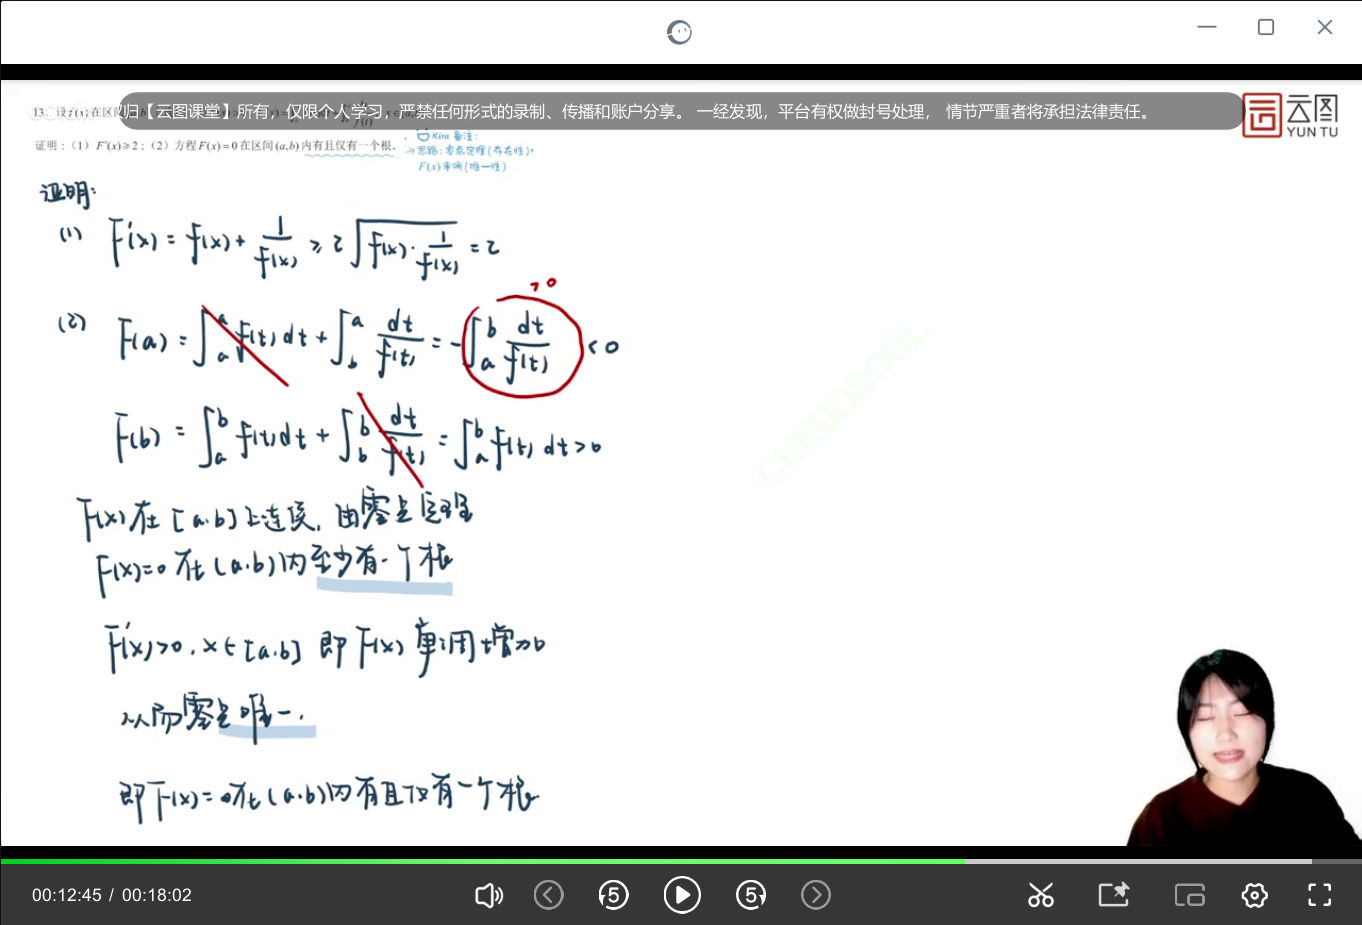 归【云图课堂】所有，仅限个人学习，严禁任何形式的录制、传播和账户分享。 一经发现，平台有权做封号处理， 情节严重者将承担法律责任。
云图
YUN TU
13. 设f(x)在区间
证明：（1）F'(x)≥2；（2）方程F(x)=0在区间(a,b)内有且仅有一个根.
Kira 备注：
→思路：零点定理(存在性)+
F(x)单调(唯一性)
证明：
(1) F'(x) = f(x) + 1/f(x) ≥ 2√(f(x)·1/f(x)) = 2
>0
(2) F(a) = ∫_a^a f(t)dt + ∫_b^a dt/f(t) = -∫_a^b dt/f(t) < 0
F(b) = ∫_a^b f(t)dt + ∫_b^b dt/f(t) = ∫_a^b f(t) dt > 0
F(x)在[a.b]上连续，由零点定理
F(x)=0在(a.b)内至少有一个根
F'(x)>0, x∈[a.b] 即F(x)单调增加
从而零点唯一.
即F(x)=0在(a.b)内有且仅有一个根
OUEDDSOUL
00:12:45 / 00:18:02
5
5